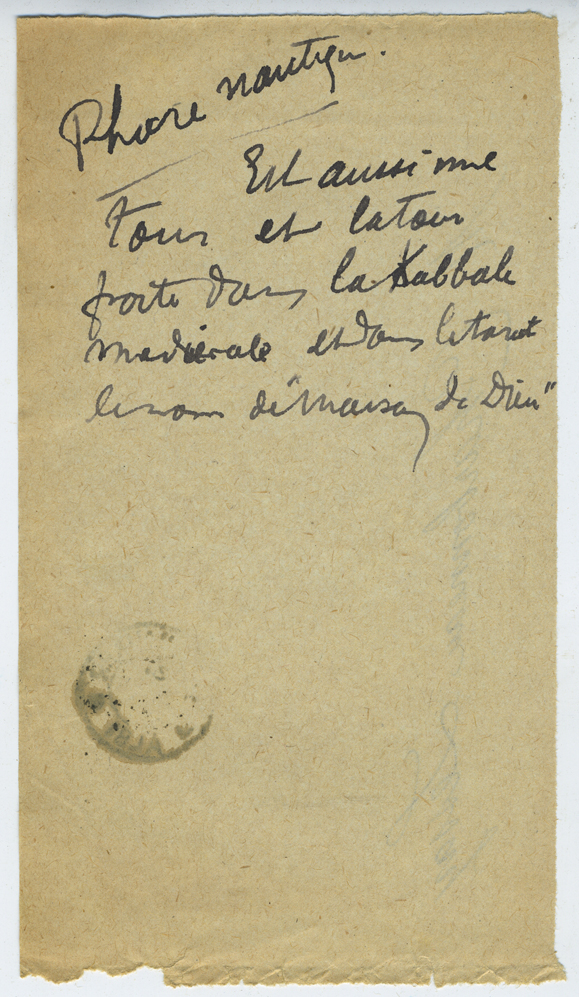 Phare nautique.
Est aussi une
Tour et la tour
porte dans la Kabbale
médiévale et dans le tarot
le nom de "Maison de Dieu"